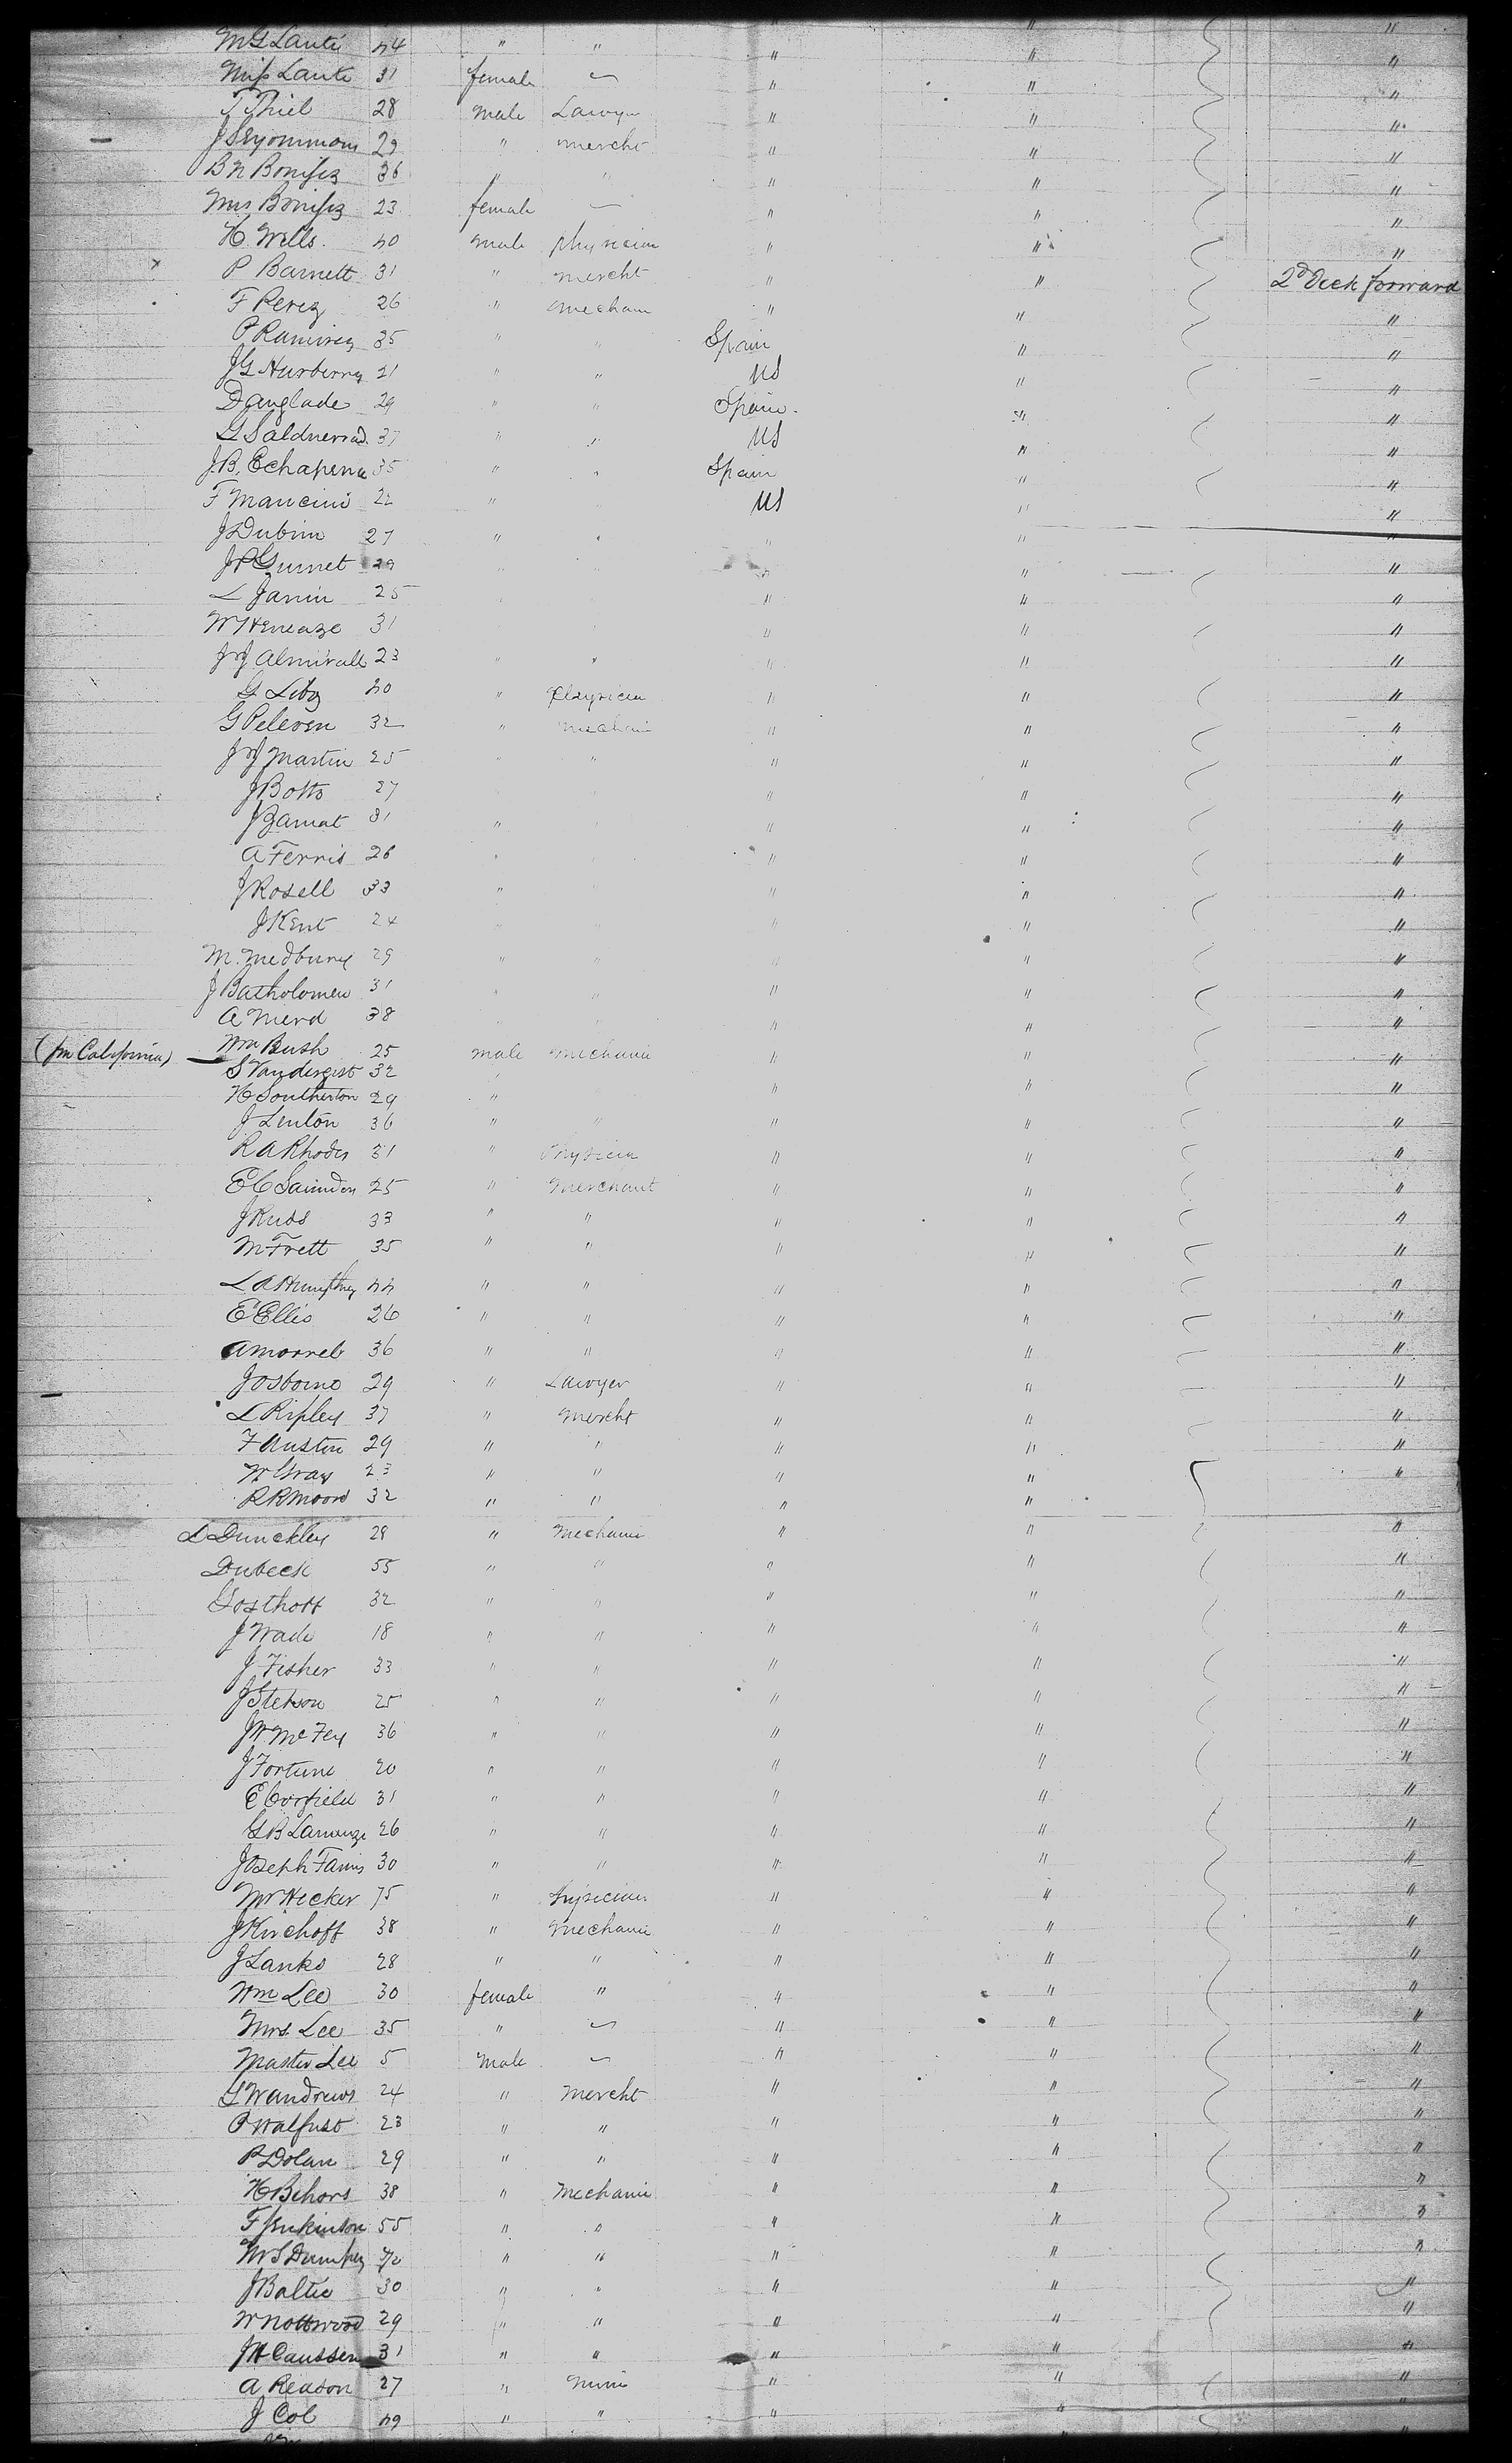 M G Lauti 44 " " " " "
Miss Lauti 31 female " " "
T Thiel 28 male Lawyer " " "
J Seyommons 29 " mercht " " "
B N Bonifiz 36 " " " " "
Mrs Bonifiz 23 female " " "
H. Wells. 40 male physician " " "
P Barnett 31 " mercht " " 2d Deck forward
F Perez 26 " mechani " " "
P Ramirez 35 " " Spain " "
J G Hurberry 21 " " US " "
Danglade 29 " " Spain " "
37 " " US " "
J.B. Echapena 35 " " Spain " "
F Mancini 22 " " US " "
J Dubim 27 " " " " "
J P Gurnet 29 " " " " "
L Janin 25 " " " "
W Heneaze 31 " " "
J J Almirall 23 " " " " "
G Litz 40 " Physician " " "
G Peleven 32 " mechani " " "
J J Martin 25 " " " " "
J Botts 27 " " "
J Barnat 31 " " " " "
A Ferris 26 " " " "
J Rosell 33 " " " " "
J Kent 24 " " " " "
M. Medbury 29 " " " " "
J Batholomew 31 " " " " "
A Merd 38 " " " " "
(for California) Wm Bush 25 male mechanic " " "
S Vandergist 32 " " " "
H Southerton 29 " " " "
J Lenton 36 " " " " "
R A Rhodes 31 " Physician " " "
E C Saunders 25 " Merchant " " "
J Russ 33 " " " " "
M Frett 35 " " " " "
L A Humphrey 44 " " " " "
E Ellis 26 " " " " "
A Morrel 36 " " " " "
J Osborne 29 " Lawyer " " "
L Ripley 37 " Mercht " " "
F Austin 29 " " " " "
W Gray 23 " " " " "
R R Moore 32 " " " " "
L Dunckley 28 " Mechanic " " "
Dubeck 55 " " " " "
G Osthoff 32 " " " " "
J Wade 18 " " " " "
J Fisher 33 " " " " "
J Stetson 25 " " " " "
J W McFey 36 " " " " "
J Fortune 20 " " " " "
E Corfield 31 " " " " "
G B Lamange 26 " " " " "
Joseph Farris 30 " " " " "
Mr Hecker 75 " Physician " " "
J Kirchoff 38 " Mechanic " " "
J Lanks 28 " " " " "
Wm Lee 30 female " " " "
Mrs Lee 35 " " " "
Master Lee 5 Male " " "
G W Andrews 24 " Mercht " " "
P Walfust 23 " " " " "
P Dolan 29 " " " " "
H Behors 38 " Mechanic " " "
F Jenkinson 55 " " " " "
W S Dumphy 40 " " " " "
J Baltic 30 " " " " "
W Nottwood 29 " " " " "
J H Caussen 31 " " " " "
A Reason 27 " Mini " " "
J Col 49 " " " " "